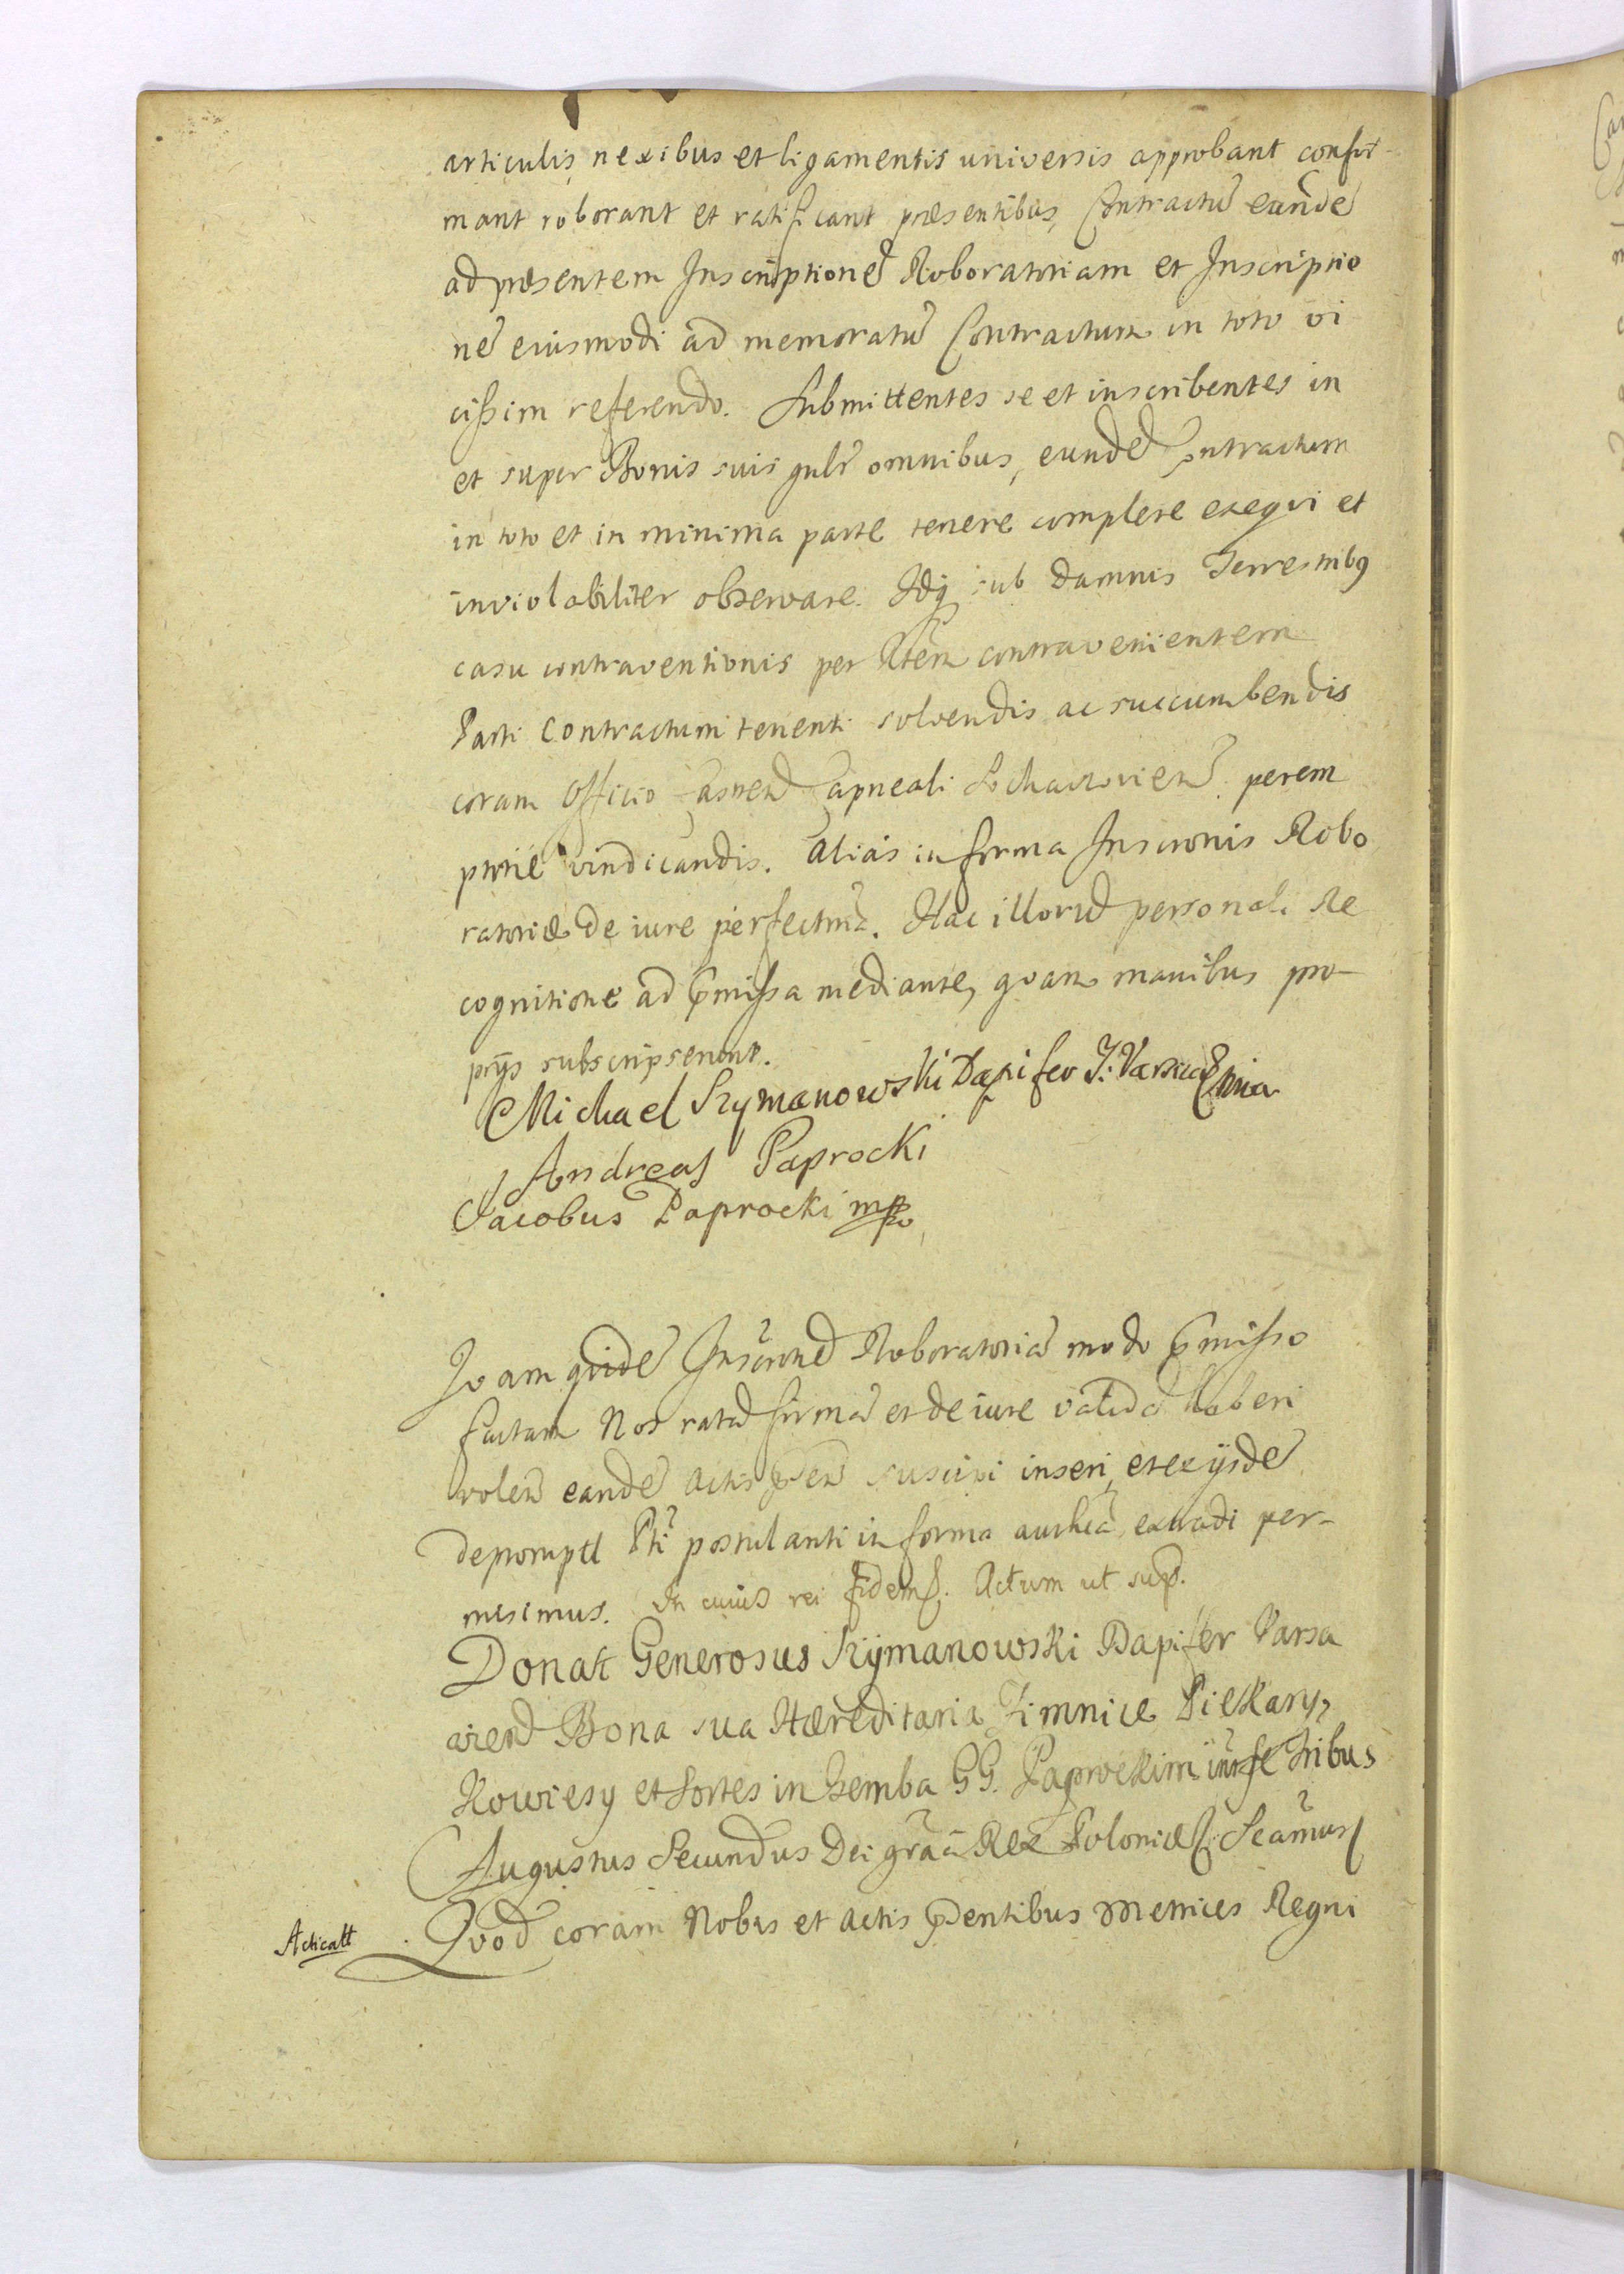 articulis, nexibus et ligamentis universis approbant confir-
mant roborant et ratificant præsentibus, Contractũ eundẽ
ad præsentem Inscriptionẽ Roboratoriam et Inscriptio
nẽ eiusmodi ad memoratũ Contractum in toto vi
cissim referendo. Submittentes se et inscribentes in
et super Bonis suis gnlr omnibus, eundẽ Contractum
in toto et in minima parte tenere complere exequi et
inviolabiliter observare. Idq̃ sub damnis Terrestribꝯ
casu contraventionis per Ptem contravenientem
Parti Contractum tenenti solvendis ac succumbendis
coram Officio Castren̄ Capneali Sochaczovien̄. perem
ptorie vindicandis. Alias in forma Inscronis Robo
ratoriæ de iure perfectmã. Hac illorũ personali Re
cognitione ad p̃missa mediante, quam manibus pro-
prijs subscripserunt.
Michael Szymanowski Dapifer T: Varsaviẽ mia
Andreas Paprocki
Jacobus Paprocki mpp
Quam quidẽ Inscronẽ Roboratoriã modo p̃misso
factam Nos ratã firmã et de iure validã haberi
volen̄ eandẽ Actis p̃sen̄ suscipi inseri, et ex ijsdẽ
depromptã Pti postulanti in forma authcã extradi per-
misimus. In cuius rei fidem. Actum ut sup̃.
Donat Generosus Szÿmanowski Dapifer Varsa
vien̄ Bona sua Hæreditaria Zimnice Piekary,
Nowiesy et Sortes in Zemba GG. Paprockim intse fribus
Augustus Secundus Dei grãa Rex Poloniæ Scãmus
Acticatt Quod coram Nobis et actis p̃sentibus Metrices Regni